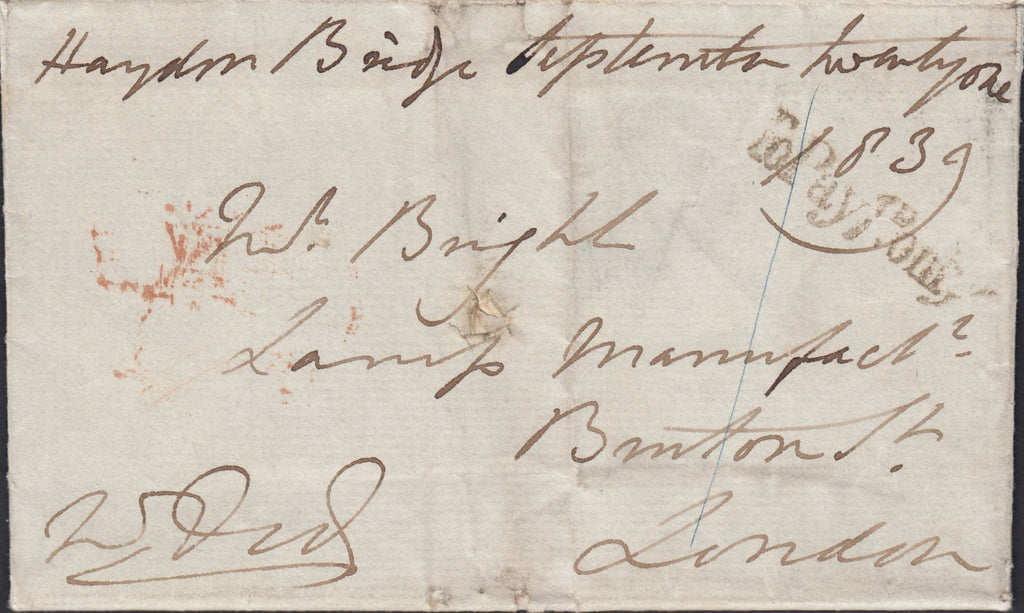 Haydon Bridge September twenty one
1839
To Pay 1 Only
Mr. Bright
Lamp Manufactr.
Bruton St.
London